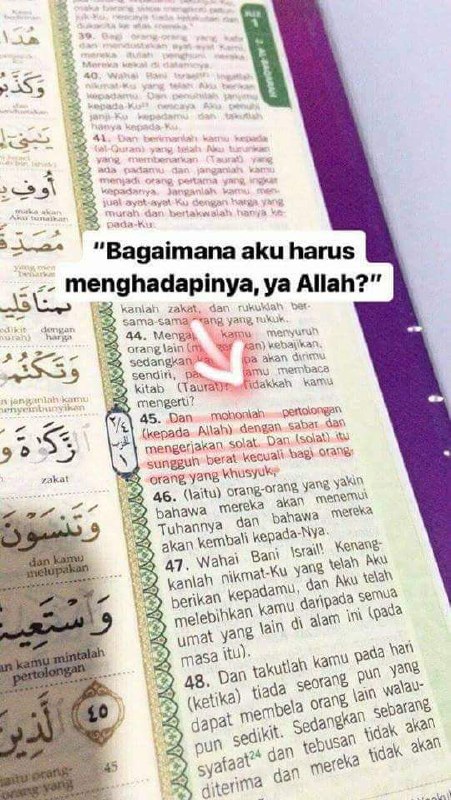 39. Bagi orang-orang yang
dan mendustakan ayat-ayat Kami,
mereka itulah penghuni neraka.
Mereka kekal di dalamnya.
40. Wahai Bani Israil! Ingatlah
nikmat-Ku yang telah Aku berikan
kepadamu. Dan penuhilah janjimu
kepada-Ku nescaya Aku penuhi
janji-Ku kepadamu dan takutlah
hanya kepada-Ku.
41. Dan berimanlah kamu kepada
(al-Quran) yang telah Aku turunkan
yang membenarkan (Taurat) yang
ada padamu dan janganlah kamu
menjadi orang pertama yang ingkar
kepadanya. Janganlah kamu men-
jual ayat-ayat-Ku dengan harga yang
murah dan bertakwalah hanya ke-
pada-Ku.
“Bagaimana aku harus
menghadapinya, ya Allah?”
kanlah zakat, dan rukuklah ber-
sama-sama orang yang rukuk.
44. kamu menyuruh
orang lain kebajikan,
sedangkan akan dirimu
sendiri, kamu membaca
kitab (Taurat)? Tidakkah kamu
mengerti?
45. Dan mohonlah pertolongan
(kepada Allah) dengan sabar dan
mengerjakan solat. Dan (solat) itu
sungguh berat kecuali bagi orang-
orang yang khusyuk,
46. (Iaitu) orang-orang yang yakin
bahawa mereka akan menemui
Tuhannya dan bahawa mereka
akan kembali kepada-Nya.
47. Wahai Bani Israil! Kenang-
kanlah nikmat-Ku yang telah Aku
berikan kepadamu, dan Aku telah
melebihkan kamu daripada semua
umat yang lain di alam ini (pada
masa itu).
48. Dan takutlah kamu pada hari
(ketika) tiada seorang pun yang
dapat membela orang lain walau-
pun sedikit. Sedangkan sebarang
syafaat24 dan tebusan tidak akan
diterima dan mereka tidak akan
أُوفِ
maka akan
Aku tunaikan
dengan
harga
وَتَكْتُمُوا
an janganlah kamu
menyembunyikan
الزَّكَوٰةَ
zakat
وَتَنسَوْنَ
dan kamu
melupakan
وَاسْتَعِينُوا
an kamu mintalah
pertolongan
الَّذِينَ
٤٥
45
orang yang